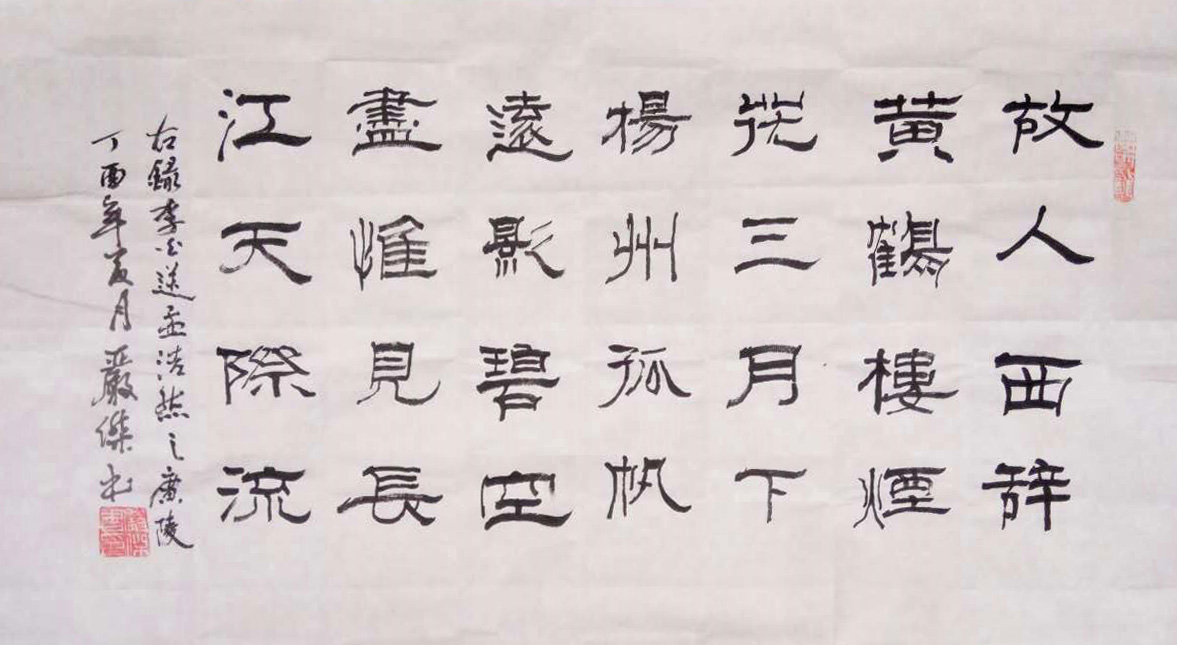 故人西辞
黄鶴樓煙
花三月下
楊州孤帆
遠影碧空
盡惟見長
江天際流
右録李白送孟浩然之廣陵
丁酉年夏月嚴傑书